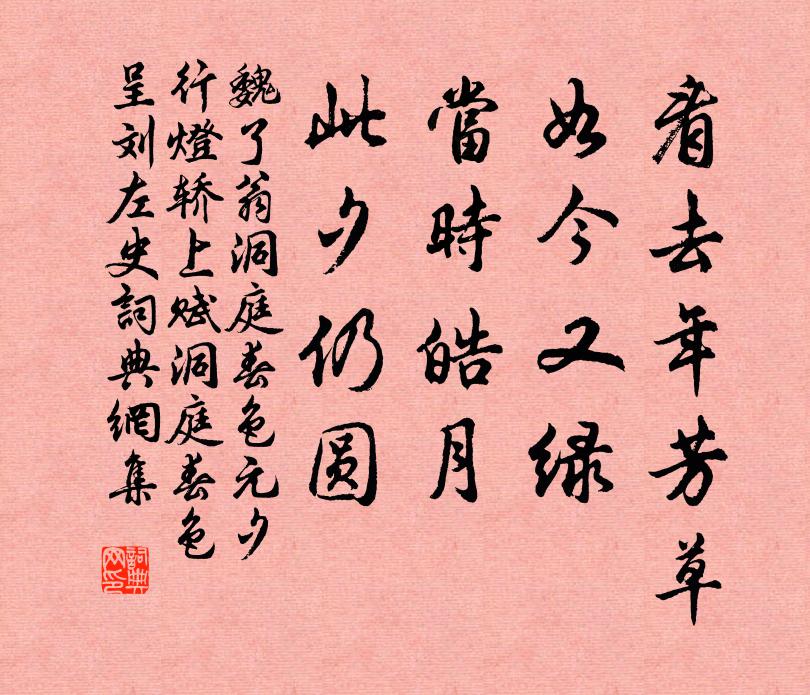 看去年芳草
如今又绿
當時皓月
此夕仍圆
魏了翁洞庭春色元夕
行燈轿上赋洞庭春色
呈刘左史詞典網集
詞典网印